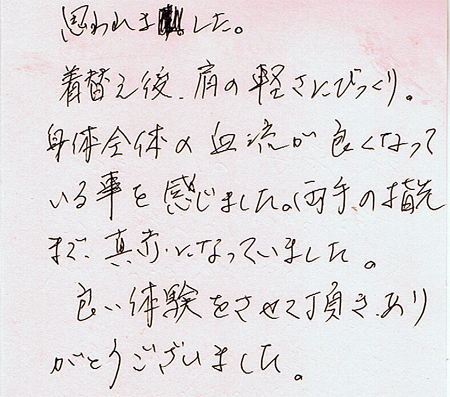 思われました。
着替え後、肩の軽さにびっくり。
身体全体の血流が良くなって
いる事を感じました。(両手の指先
まで、真赤になっていました。
良い体験をさせて頂き、あり
がとうございました。